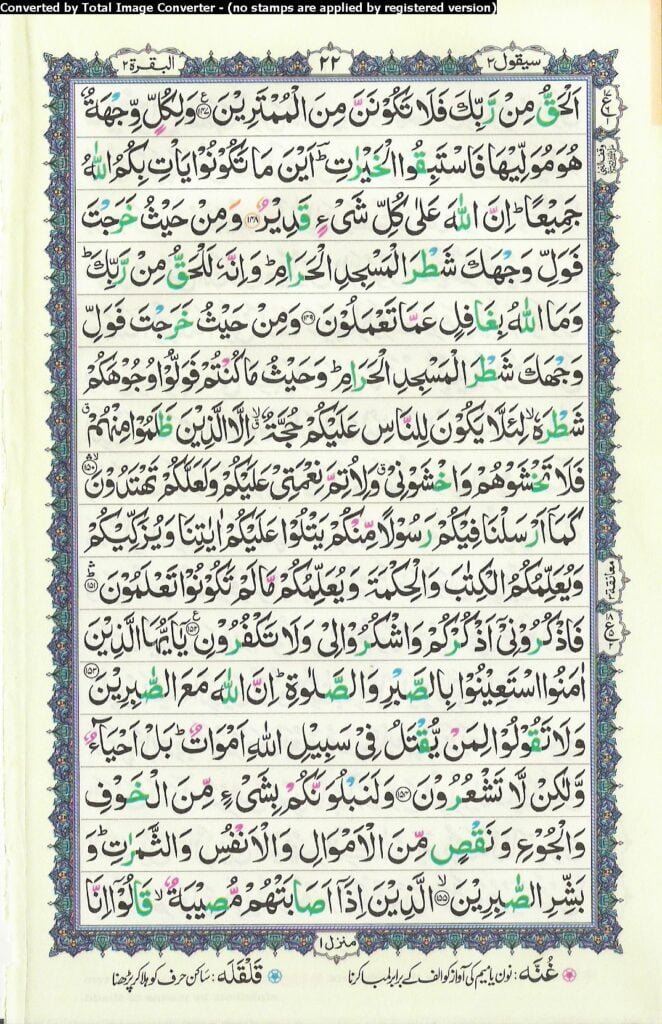 Converted by Total Image Converter - (no stamps are applied by registered version)
سيقول ٢
٢٢
البقرة ٢
اَلْحَقُّ مِنْ رَّبِّكَ فَلَا تَكُوْنَنَّ مِنَ الْمُمْتَرِيْنَ ﴿۱۴۷﴾ وَلِكُلٍّ وِّجْهَةٌ
هُوَ مُوَلِّيْهَا فَاسْتَبِقُوا الْخَيْرٰتِ ؕ اَيْنَ مَا تَكُوْنُوْا يَاْتِ بِكُمُ اللّٰهُ
جَمِيْعًا ؕ اِنَّ اللّٰهَ عَلٰى كُلِّ شَىْءٍ قَدِيْرٌ ﴿۱۴۸﴾ وَمِنْ حَيْثُ خَرَجْتَ
فَوَلِّ وَجْهَكَ شَطْرَ الْمَسْجِدِ الْحَرَامِ ؕ وَاِنَّهٗ لَلْحَقُّ مِنْ رَّبِّكَ ؕ
وَمَا اللّٰهُ بِغَافِلٍ عَمَّا تَعْمَلُوْنَ ﴿۱۴۹﴾ وَمِنْ حَيْثُ خَرَجْتَ فَوَلِّ
وَجْهَكَ شَطْرَ الْمَسْجِدِ الْحَرَامِ ؕ وَحَيْثُ مَا كُنْتُمْ فَوَلُّوْا وُجُوْهَكُمْ
شَطْرَهٗ ۙ لِئَلَّا يَكُوْنَ لِلنَّاسِ عَلَيْكُمْ حُجَّةٌ ۙ اِلَّا الَّذِيْنَ ظَلَمُوْا مِنْهُمْ ۗ
فَلَا تَخْشَوْهُمْ وَاخْشَوْنِىْ ۗ وَلِاُتِمَّ نِعْمَتِىْ عَلَيْكُمْ وَلَعَلَّكُمْ تَهْتَدُوْنَ ﴿۱۵۰﴾
كَمَاۤ اَرْسَلْنَا فِيْكُمْ رَسُوْلًا مِّنْكُمْ يَتْلُوْا عَلَيْكُمْ اٰيٰتِنَا وَيُزَكِّيْكُمْ
وَيُعَلِّمُكُمُ الْكِتٰبَ وَالْحِكْمَةَ وَيُعَلِّمُكُمْ مَّا لَمْ تَكُوْنُوْا تَعْلَمُوْنَ ﴿۱۵۱﴾
فَاذْكُرُوْنِىْۤ اَذْكُرْكُمْ وَاشْكُرُوْا لِىْ وَلَا تَكْفُرُوْنِ ﴿۱۵۲﴾ يٰۤاَيُّهَا الَّذِيْنَ
اٰمَنُوا اسْتَعِيْنُوْا بِالصَّبْرِ وَالصَّلٰوةِ ؕ اِنَّ اللّٰهَ مَعَ الصّٰبِرِيْنَ ﴿۱۵۳﴾
وَلَا تَقُوْلُوْا لِمَنْ يُّقْتَلُ فِىْ سَبِيْلِ اللّٰهِ اَمْوَاتٌ ؕ بَلْ اَحْيَآءٌ
وَّلٰكِنْ لَّا تَشْعُرُوْنَ ﴿۱۵۴﴾ وَلَنَبْلُوَنَّكُمْ بِشَىْءٍ مِّنَ الْخَوْفِ
وَالْجُوْعِ وَنَقْصٍ مِّنَ الْاَمْوَالِ وَالْاَنْفُسِ وَالثَّمَرٰتِ ؕ وَ
بَشِّرِ الصّٰبِرِيْنَ ۙ ﴿۱۵۵﴾ الَّذِيْنَ اِذَاۤ اَصَابَتْهُمْ مُّصِيْبَةٌ ۙ قَالُوْۤا اِنَّا
معانقة
منزل ١
غُنَّه: نون یا میم کی آواز کو الف کے برابر لمبا کرنا
قَلْقَلَه: ساکن حرف کو ہلا کر پڑھنا